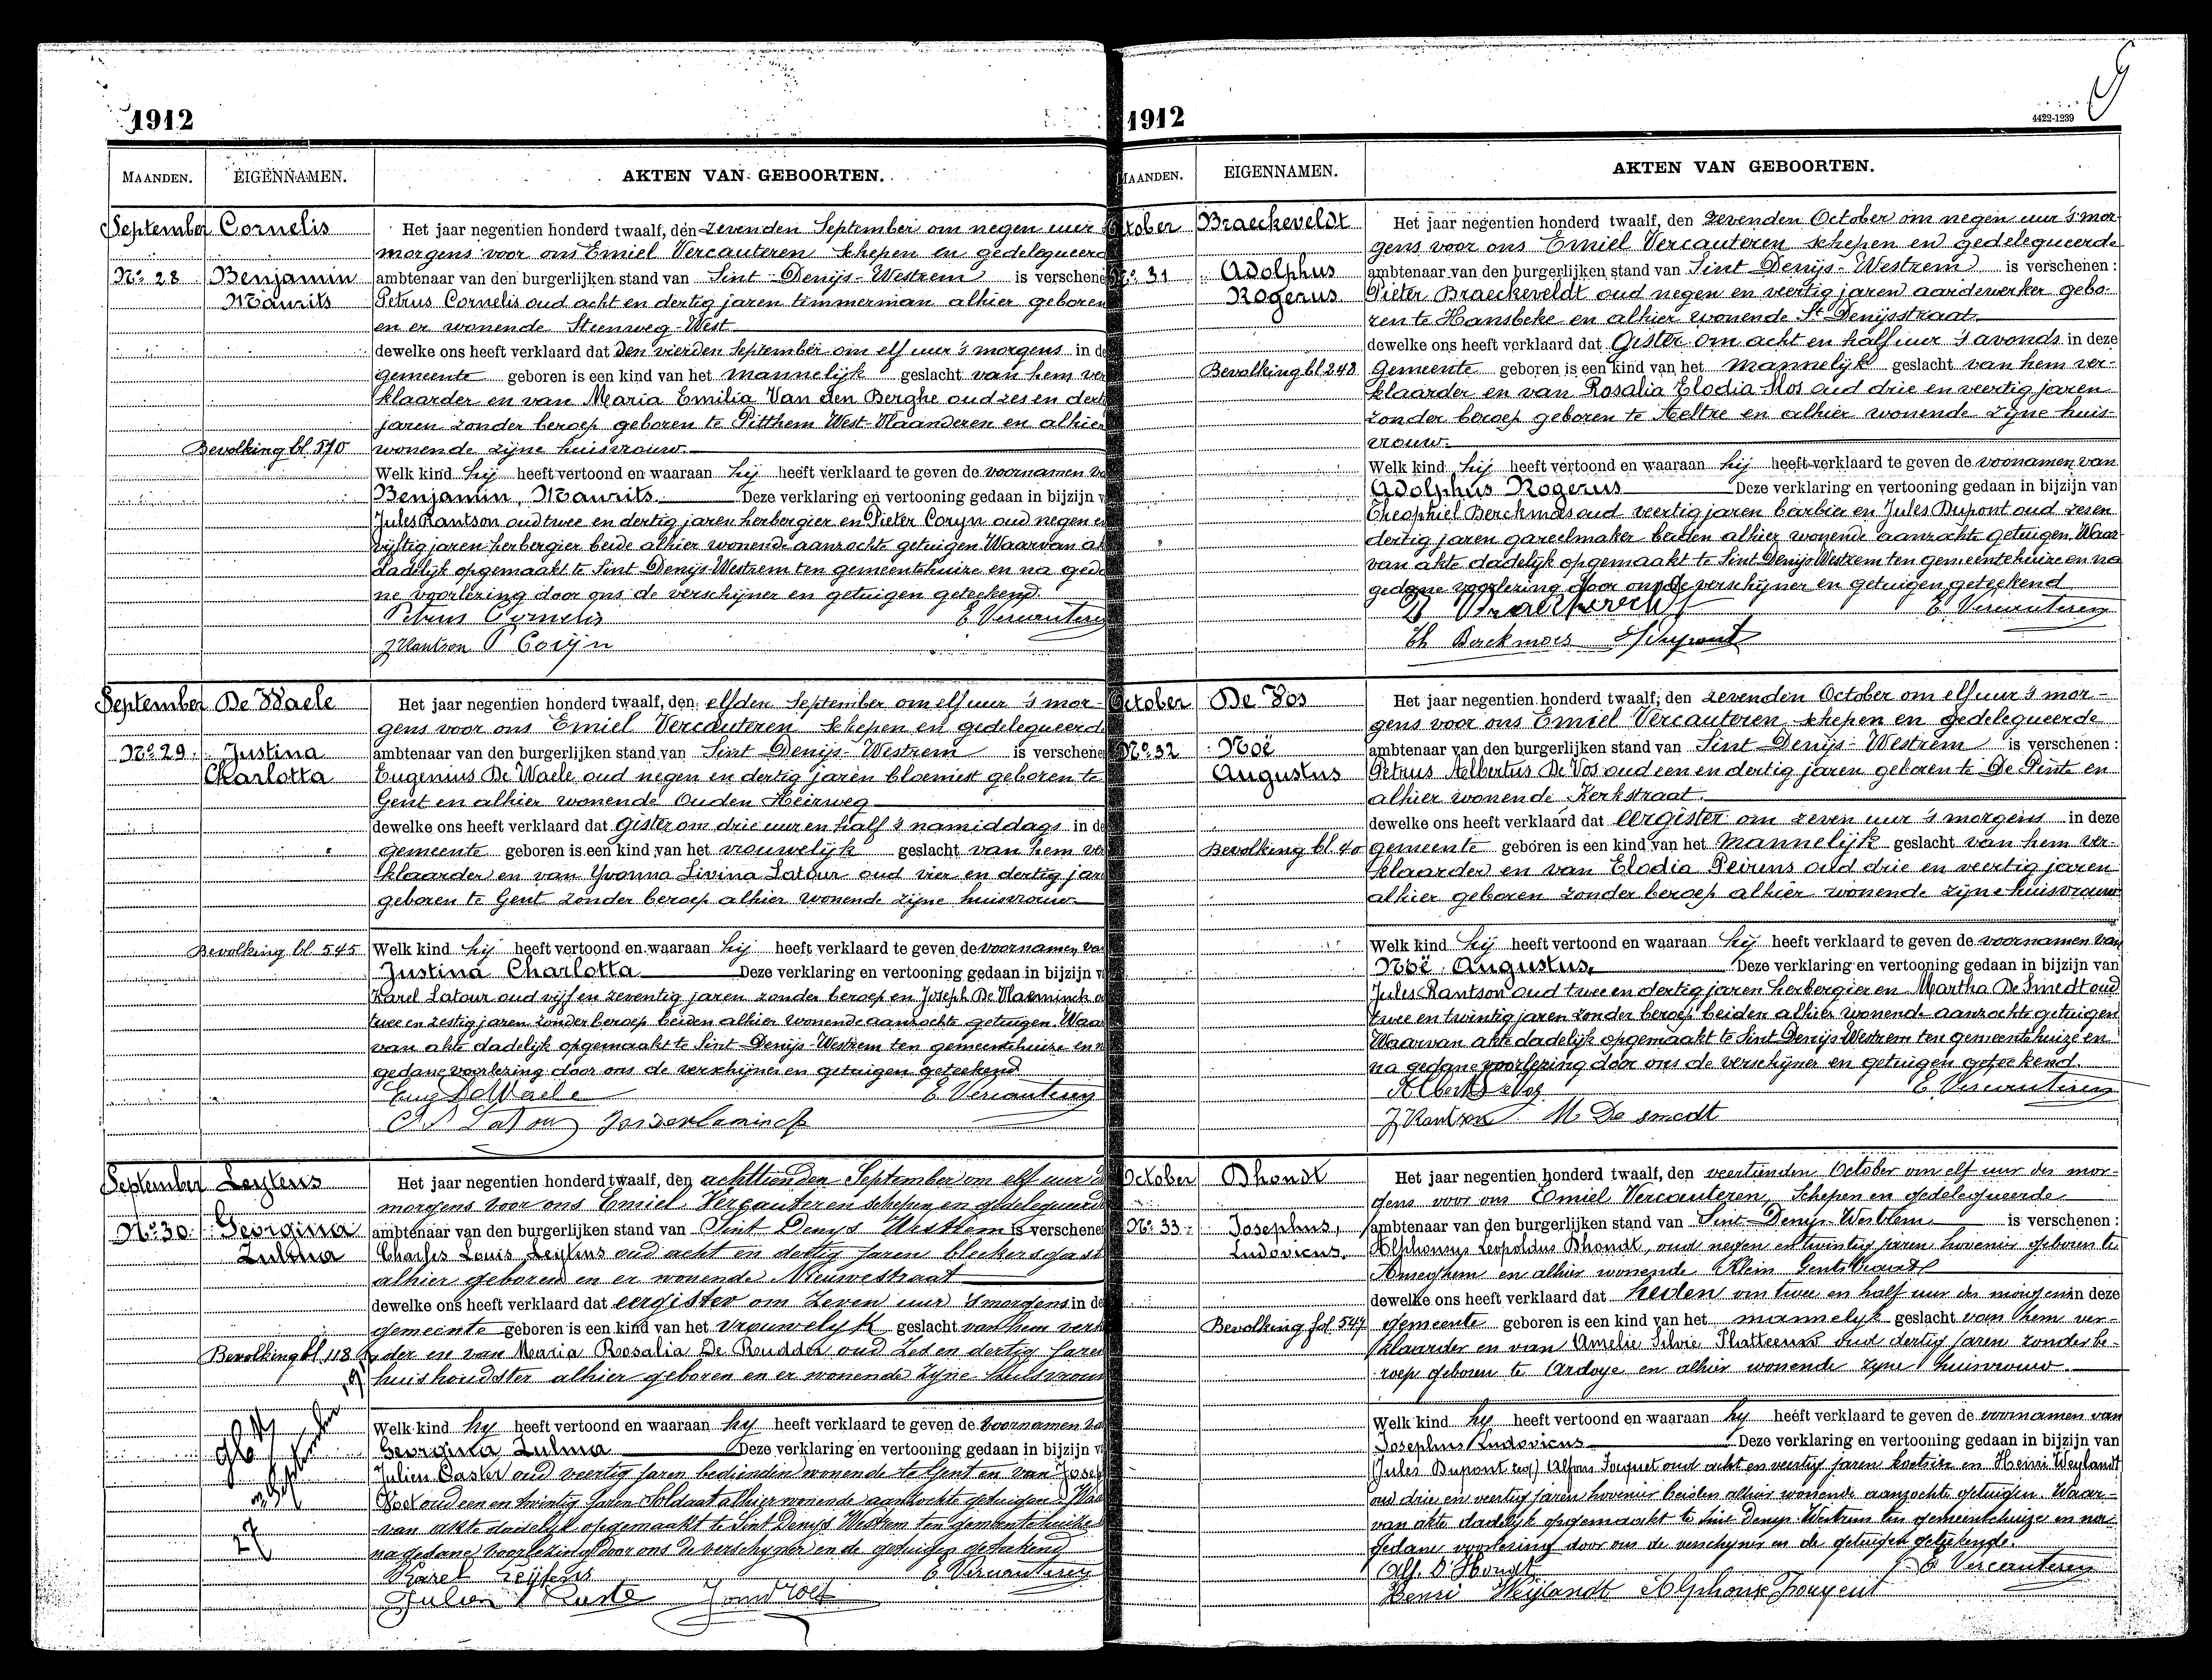 1912
MAANDEN. EIGENNAMEN. AKTEN VAN GEBOORTEN.
September Cornelis
No. 28 Benjamin
Maurits
Bevolking bl. 570
Het jaar negentien honderd twaalf, den zevenden September om negen uur
morgens voor ons Emiel Vercauteren Schepen en gedelegueerd
ambtenaar van den burgerlijken stand van Sint Denijs-Westrem is verschene
Petrus Cornelis oud acht en dertig jaren timmerman alhier geboren
en er wonende Steenweg-West
dewelke ons heeft verklaard dat den vierden September om elf uur 's morgens in de
gemeente geboren is een kind van het mannelijk geslacht van hem ver
klaarder en van Maria Emilia Van den Berghe oud zes en dert
jaren zonder beroep geboren te Pitthem West-Vlaanderen en alhier
wonende zijne huisvrouw.
Welk kind hij heeft vertoond en waaraan hij heeft verklaard te geven de voornamen va
Benjamin, Maurits Deze verklaring en vertooning gedaan in bijzijn v
Jules Rantson oud twee en dertig jaren herbergier en Pieter Coryn oud negen en
vijftig jaren herbergier beide alhier wonende aanzochte getuigen Waarvan ak
dadelijk opgemaakt te Sint Denijs Westrem ten gemeentehuize en na geda
ne voorlezing door ons de verschijner en getuigen geteekend.
Petrus Cornelis E. Vercauteren
J Rantson P Corijn
September De Waele
No. 29. Justina
Charlotta
Bevolking bl. 545
Het jaar negentien honderd twaalf, den elfden September om elf uur 's mor-
gens voor ons Emiel Vercauteren Schepen en gedelegueerd
ambtenaar van den burgerlijken stand van Sint Denijs-Westrem is verschene
Eugenius De Waele, oud negen en dertig jaren bloemist geboren te
Gent en alhier wonende Ouden Heirweg
dewelke ons heeft verklaard dat Gister om drie uur en half 's namiddags in de
gemeente geboren is een kind van het vrouwelijk geslacht van hem ver
klaarder en van Yvonna Livina Latour oud vier en dertig jar
geboren te Gent zonder beroep alhier wonende zijne huisvrouw
Welk kind hij heeft vertoond en waaraan hij heeft verklaard te geven de voornamen va
Justina Charlotta Deze verklaring en vertooning gedaan in bijzijn v
Karel Latour oud vijf en zeventig jaren zonder beroep en Joseph De Vlaeminck o
twee en zestig jaren zonder beroep beiden alhier wonende aanzochte getuigen. Waa
van akte dadelijk opgemaakt te Sint-Denijs-Westrem ten gemeentehuize en n
gedane voorlezing door ons de verschijner en getuigen geteekend
Eug De Waele E. Vercauteren
Latour
September Leytens
No. 30. Georgina
Zulma
Bevolking bl. 118
27
Het jaar negentien honderd twaalf, den achttienden September om elf uur
morgens voor ons Emiel Vercauteren schepen en gedelegueerd
ambtenaar van den burgerlijken stand van Sint Denys Westrem is verschene
Charles Louis Leytens oud acht en dertig jaren bleekersgast
alhier geboren en er wonende Nieuwestraat
dewelke ons heeft verklaard dat eergister om zeven uur 's morgens in de
gemeente geboren is een kind van het vrouwelyk geslacht van hem verk
der en van Maria Rosalia De Rudder oud zes en dertig jaren
huishoudster alhier geboren en er wonende zyne huisvrouw
Welk kind hy heeft vertoond en waaraan hy heeft verklaard te geven de voornamen va
Georgina Zulma Deze verklaring en vertooning gedaan in bijzijn v
Julien oud veertig jaren wonende te Gent en van Josep
oud een en twintig jaren Soldaat alhier wonende aanzochte getuigen. Waa
van akte dadelyk opgemaakt te Sint Denys Westrem ten gemeentehuize
na gedane voorlezing door ons de verschyner en de getuigen geteekend
Karel Leytens E. Vercauteren
Julien
1912
4422-1239
MAANDEN. EIGENNAMEN. AKTEN VAN GEBOORTEN.
October Braeckeveldt
No. 31 Adolphus
Rogerus
Bevolking bl 248
Het jaar negentien honderd twaalf, den zevenden October om negen uur 's mor-
gens voor ons Emiel Vercauteren schepen en gedelegueerde
ambtenaar van den burgerlijken stand van Sint Denijs-Westrem is verschenen:
Pieter Braeckeveldt oud negen en veertig jaren aardewerker gebo-
ren te Hansbeke en alhier wonende St Denijsstraat
dewelke ons heeft verklaard dat Gister om acht en half uur 's avonds in deze
Gemeente geboren is een kind van het mannelijk geslacht van hem ver-
klaarder en van Rosalia Elodia Mos oud drie en veertig jaren
zonder beroep geboren te Aeltre en alhier wonende zijne huis-
vrouw.
Welk kind hij heeft vertoond en waaraan hij heeft verklaard te geven de voornamen van
Adolphus Rogerus Deze verklaring en vertooning gedaan in bijzijn van
Theophiel Berckmoes oud veertig jaren barbier en Jules Dupont oud zes en
dertig jaren gareelmaker beiden alhier wonende aanzochte getuigen. Waar-
van akte dadelijk opgemaakt te Sint Denijs Westrem ten gemeentehuize en na
gedane voorlezing door ons de verschijner en getuigen geteekend
E. Vercauteren
Th Berckmoes J Dupont
October De Vos
No. 32 Noë
Augustus
Bevolking bl. 40
Het jaar negentien honderd twaalf, den zevenden October om elf uur 's mor-
gens voor ons Emiel Vercauteren schepen en gedelegueerde
ambtenaar van den burgerlijken stand van Sint Denijs-Westrem is verschenen:
Petrus Aelbertus De Vos oud een en dertig jaren geboren te De Pinte en
alhier wonende Kerkstraat.
dewelke ons heeft verklaard dat eergister om zeven uur 's morgens in deze
gemeente geboren is een kind van het mannelijk geslacht van hem ver-
klaarder en van Elodia Peirens oud drie en veertig jaren
alhier geboren zonder beroep alhier wonende zijne huisvrouw
Welk kind hij heeft vertoond en waaraan hij heeft verklaard te geven de voornamen van
Noë Augustus, Deze verklaring en vertooning gedaan in bijzijn van
Jules Rantson oud twee en dertig jaren herbergier en Martha De Smedt oud
twee en twintig jaren zonder beroep beiden alhier wonende aanzochte getuigen
Waarvan akte dadelijk opgemaakt te Sint Denijs Westrem ten gemeentehuize en
na gedane voorlezing door ons de verschijner en getuigen geteekend.
Albert De Vos E. Vercauteren
J Rantson M. De smedt
October Dhondt
No. 33. Josephus,
Ludovicus.
Bevolking fol. 547
Het jaar negentien honderd twaalf, den veertienden October om elf uur des mor-
gens voor ons Emiel Vercauteren, Schepen en gedelegueerde
ambtenaar van den burgerlijken stand van Sint-Denijs-Westrem is verschenen:
Alphonsus Leopoldus Dhondt, oud negen en twintig jaren hovenier geboren te
Anseghem en alhier wonende Klein Gentstraat
dewelke ons heeft verklaard dat heden om twee en half uur des morgens in deze
gemeente geboren is een kind van het mannelyk geslacht van hem ver-
klaarder en van Amelie Silvie Platteeuw oud dertig jaren zonder be-
roep geboren te Ardoye en alhier wonende zyne huisvrouw.
Welk kind hy heeft vertoond en waaraan hy heeft verklaard te geven de voornamen van
Josephus Ludovicus Deze verklaring en vertooning gedaan in bijzijn van
(Jules Dupont Alfons oud acht en veertig jaren koetsier en Henri Weylandt
oud drie en veertig jaren hovenier beiden alhier wonende aanzochte getuigen. Waar-
van akte dadelyk opgemaakt te Sint Denys Westrem ten gemeentehuize en na
gedane voorlezing door ons de verschyner en de getuigen geteekend.
Alf. D'Hondt E Vercauteren
Henri Weylandt Alphonse